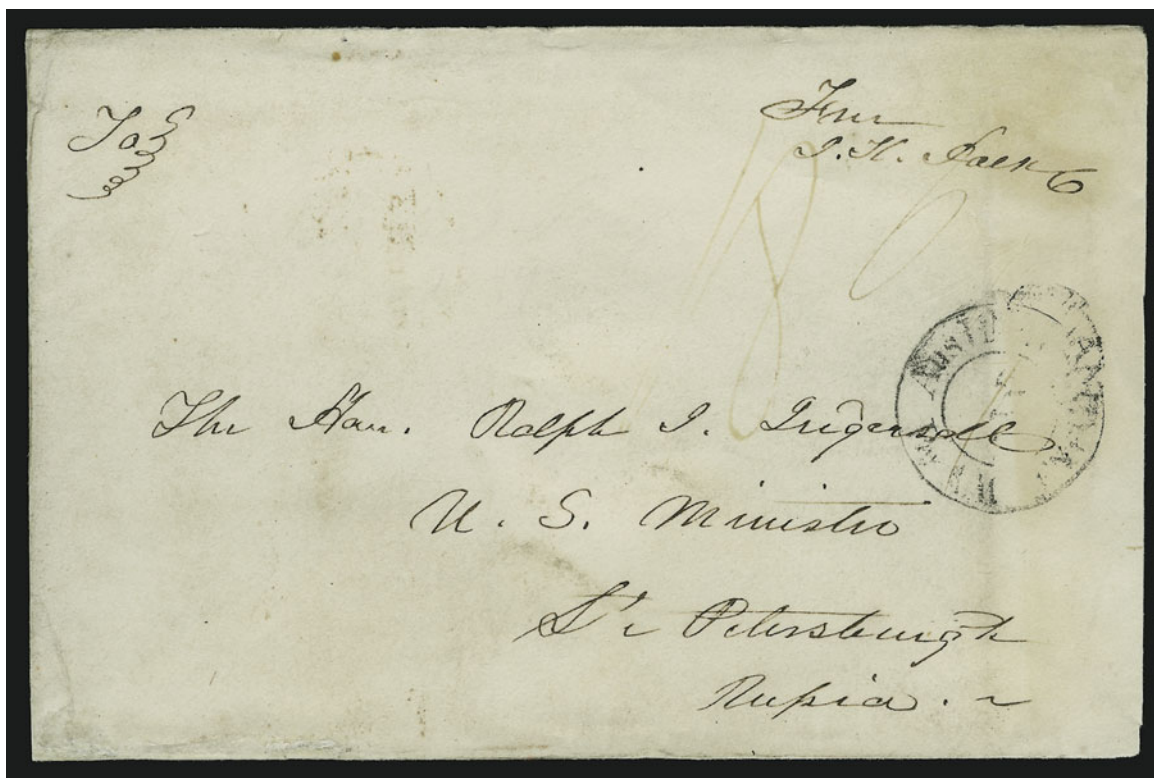 To
From
J. K. Polk
The Hon. Ralph I. Ingersoll
U. S. Minister
St. Petersburgh
Russia.
18